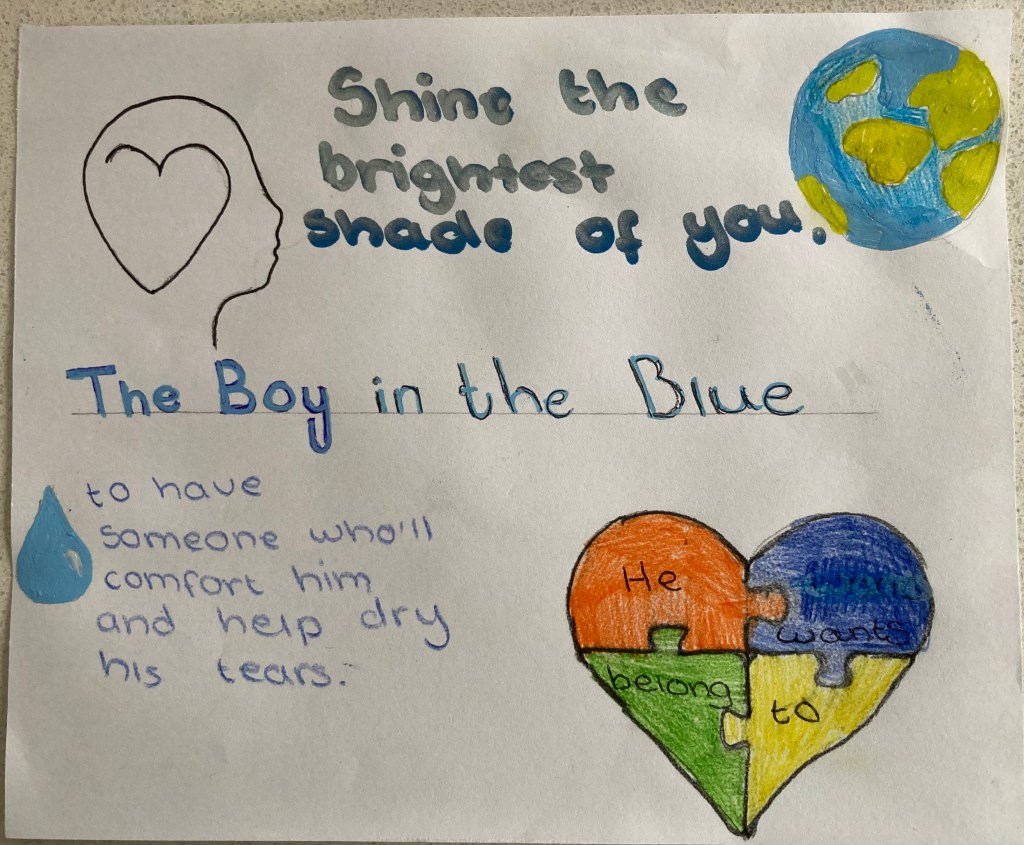 Shine the
brightest
shade of you.
The Boy in the Blue
to have
someone who'll
comfort him
and help dry
his tears.
He
wants
belong
to